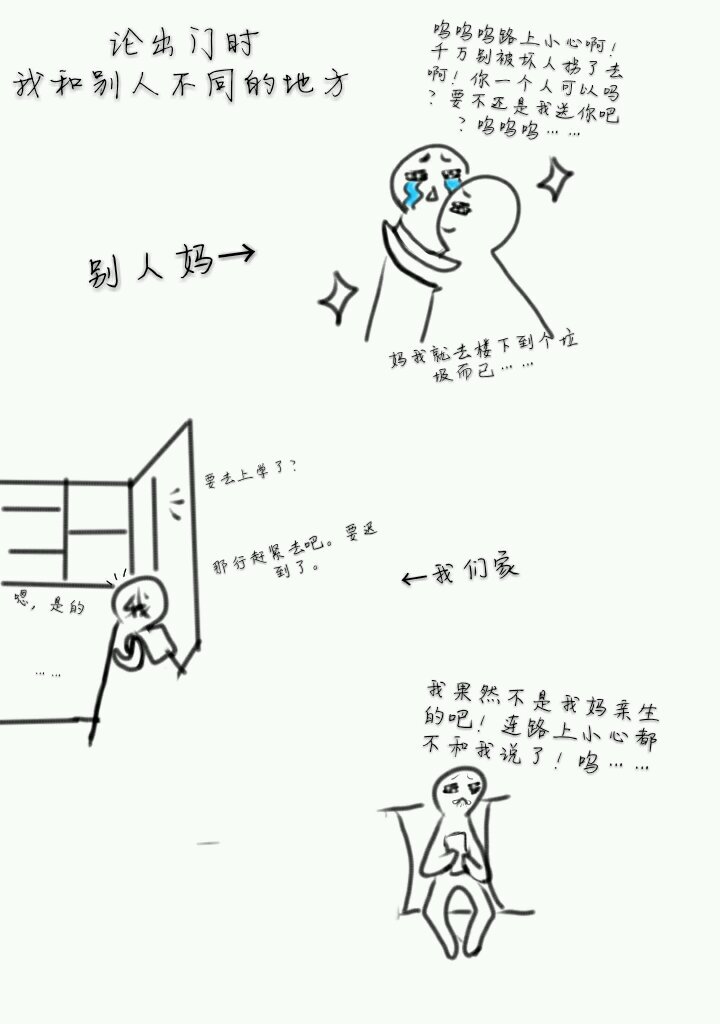 论出门时
我和别人不同的地方
呜呜呜路上小心啊！
千万别被坏人拐了去
啊！你一个人可以吗
？要不还是我送你吧
？呜呜呜……
别人妈→
妈我就去楼下到个垃
圾而已……
要去上学了？
嗯，是的
那行赶紧去吧。要迟
到了。
……
←我们家
我果然不是我妈亲生
的吧！连路上小心都
不和我说了！呜……